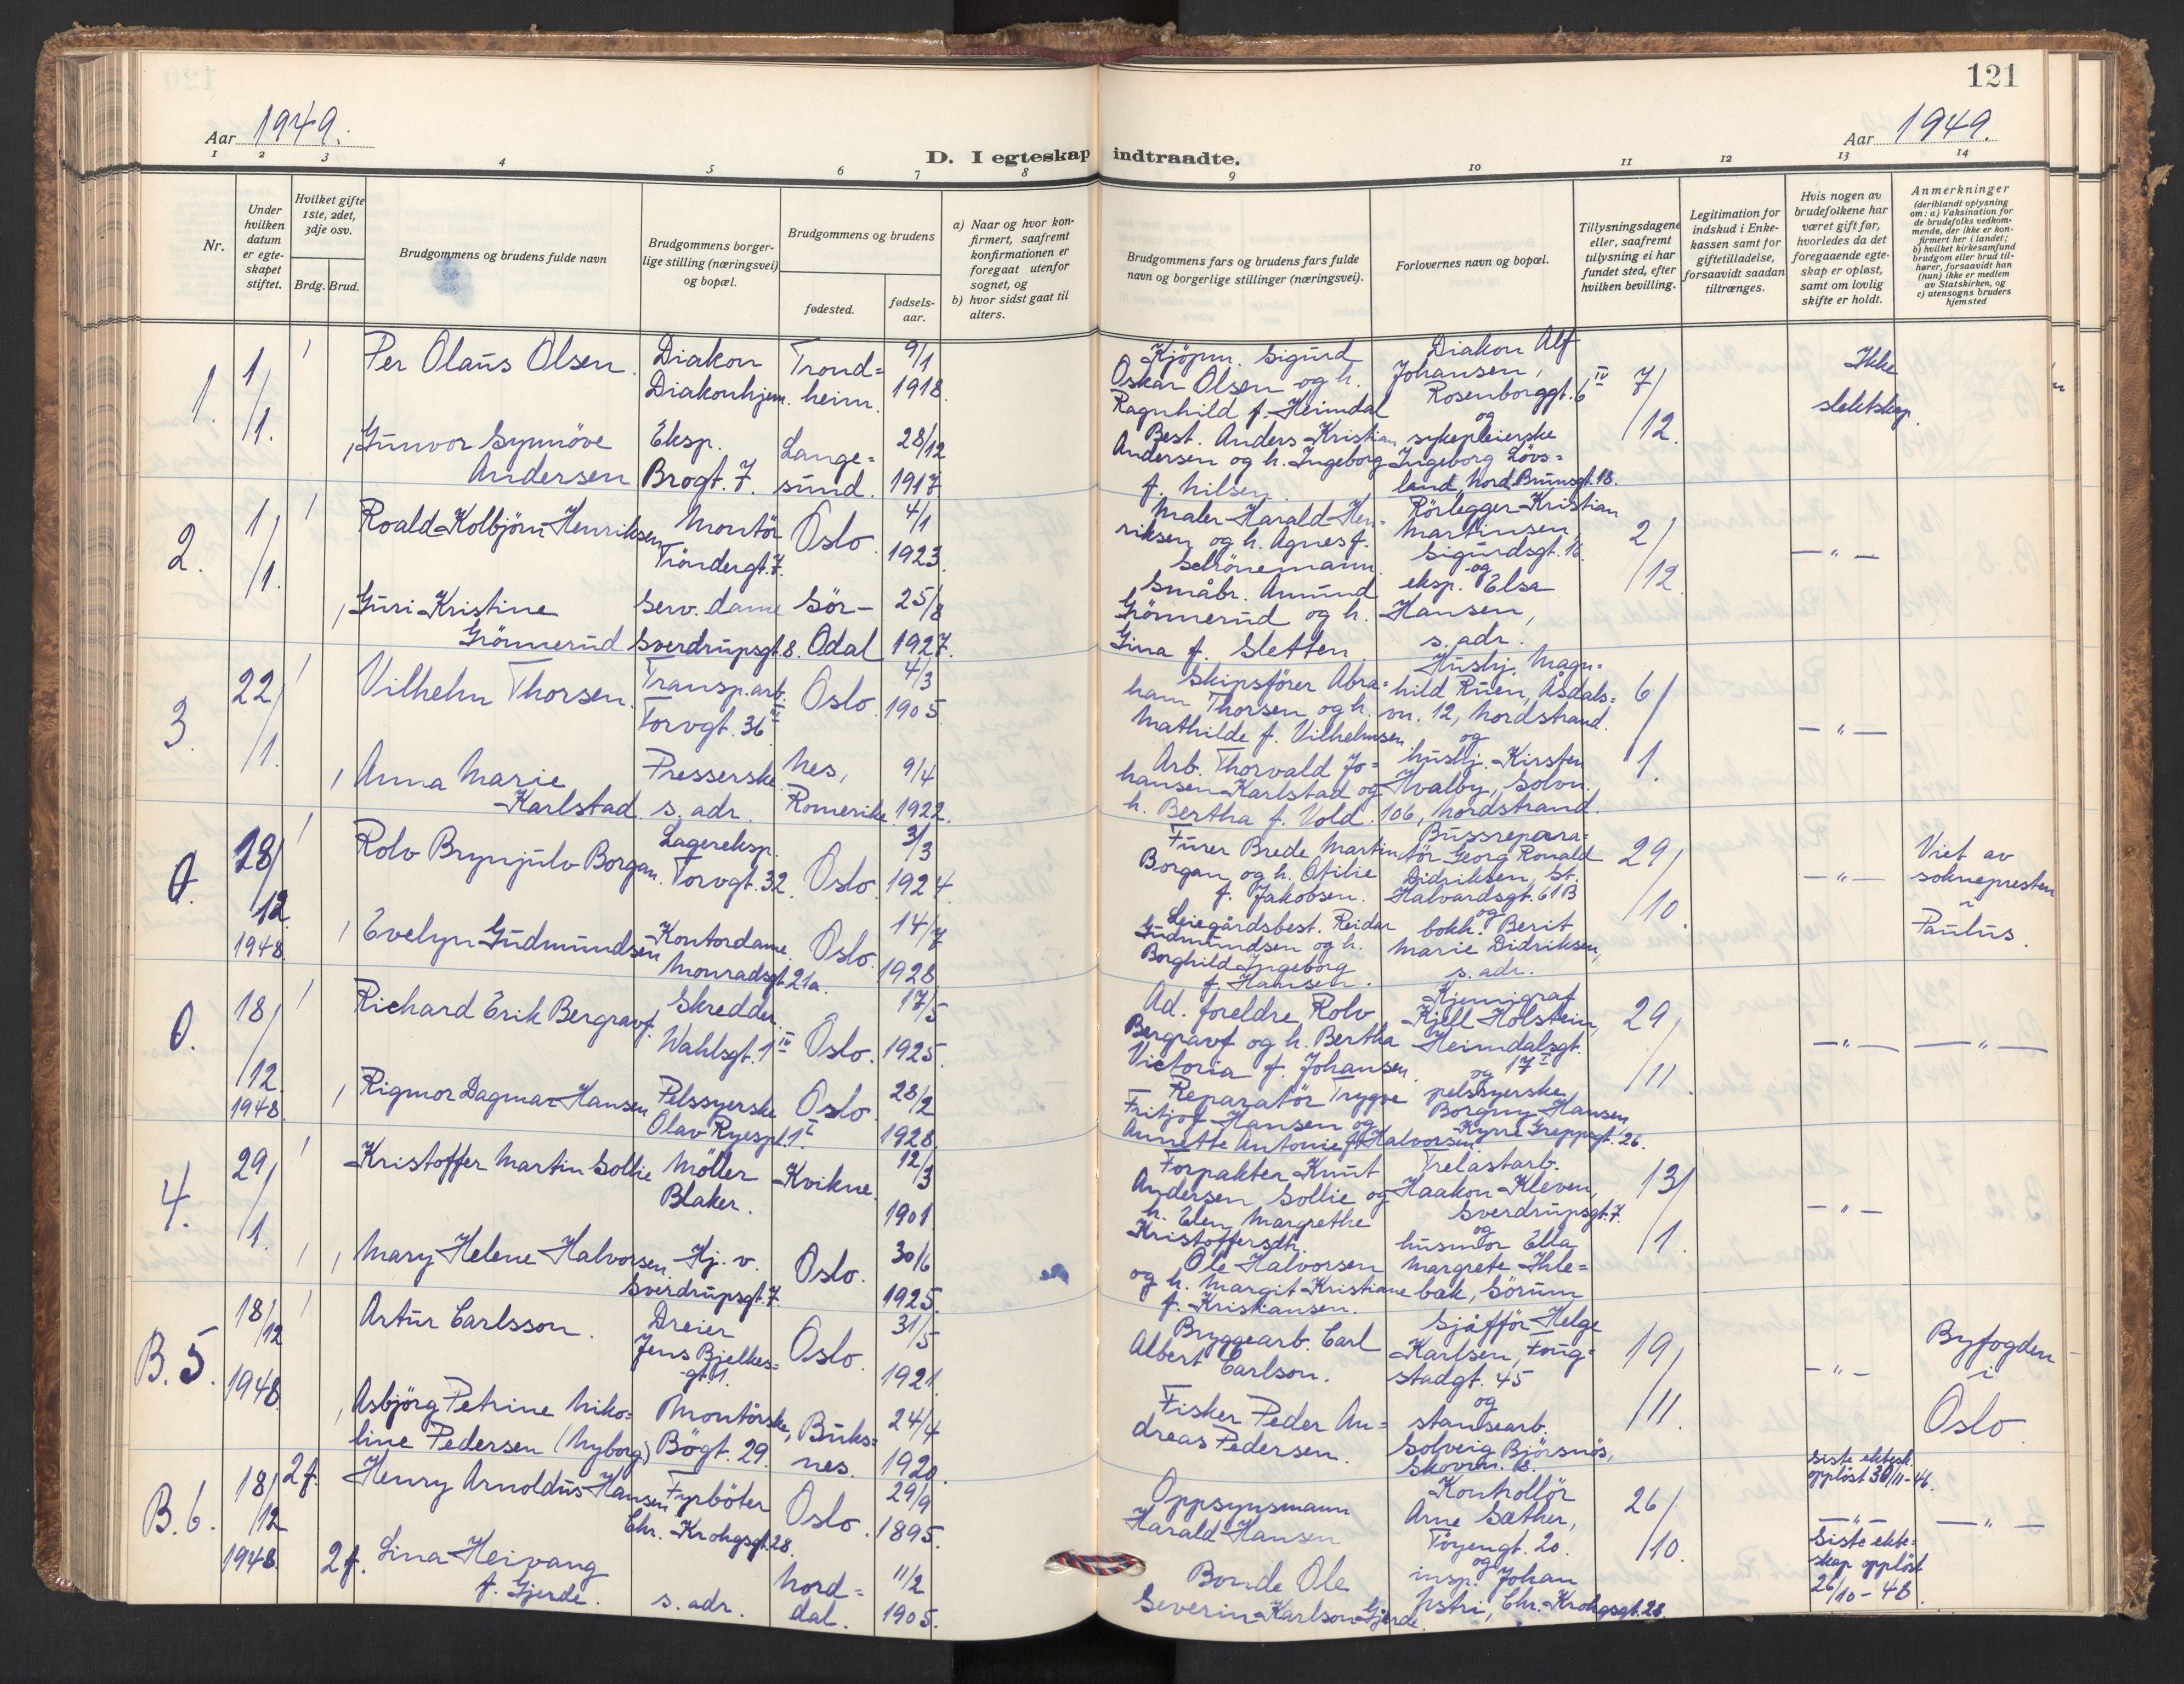 121
Aar 1949.
Aar 1949.
D. I egteskap indtraadte.
1 2 3 4 5 6 7 8 9 10 11 12 13 14
Nr.
Under hvilken datum er egteskapet stiftet.
Hvilket gifte 1ste, 2det, 3dje osv.
Brdg. Brud.
Brudgommens og brudens fulde navn
Brudgommens borgerlige stilling (næringsvei) og bopæl.
Brudgommens og brudens
fødested.
fødselsaar.
a) Naar og hvor konfirmert, saafremt konfirmationen er foregaat utenfor sognet, og
b) hvor sidst gaat til alters.
Brudgommens fars og brudens fars fulde navn og borgerlige stillinger (næringsvei).
Forlovernes navn og bopæl.
Tillysningsdagene eller, saafremt tullysning ei har fundet sted, efter hvilken bevilling.
Legitimation for indskud i Enkekassen samt for giftetilladelse, forsaavidt saadan tiltrænges.
Hvis nogen av brudefolkene har været gift før, hvorledes da det foregaaende egteskap er opløst, samt om lovlig skifte er holdt.
Anmerkninger
(deriblandt oplysning om: a) Vaksination for de brudefolks vedkommende, der ikke er konfirmert her i landet; b) hvilket kirkesamfund brudgom eller brud tilhører, forsaavidt han (hun) ikke er medlem av Statskirken, og c) utensogns bruders hjemsted
1. 1/1. 1
Per Olaus Olsen.
Diakon
Diakonhjem.
Trondheim.
9/1 1918.
Kjøpm. Sigurd
Oskar Olsen og h.
Ragnhild f. Heimdal
Diakon Alf
Johansen,
Rosenborggt. 6 IV
og
7/12.
Ikke
slektskap.
1 Gunvor Synnöve
Andersen
Eksp.
Brogt. 7.
Lange=
sund.
28/12 1917.
Best. Anders Kristian
Andersen og h. Ingeborg
f. Nilsen.
sykepleierske
Ingeborg Lövs=
land, Nord. Brunsgt. 18.
2. 1/1. 1
Roald Kolbjörn Henriksen
Montör
Tröndergt. 7.
Oslo.
4/1 1923.
Maler Harald Hen=
riksen og h. Agnes f.
Schönemann.
Rörlegger Kristian
Martinsen,
Sigurdsgt. 16.
og
2/12.
— " —
1 Guri Kristine
Grönnerud
Serv. dame
Sverdrupsgt. 8.
Sör-
Odal
25/8 1927.
Småbr. Amund
Grönnerud og h.
Gina f. Sletten
eksp. Elsa
Hansen,
s. adr.
3. 22/1. 1
Vilhelm Thorsen.
Transp.arb.
Torvgt. 36 III
Oslo.
4/3 1905
Skipsförer Abra=
ham Thorsen og h.
Mathilde f. Vilhelmsen.
Hushj. Magn=
hild Ruen, Åsdals=
vn. 12, Nordstrand.
og
6/1.
— " —
1 Anna Marie
Karlstad.
Presserske
s. adr.
Nes,
Romerike.
9/4 1922.
Arb. Thorvald Jo=
hansen Karlstad og
h. Bertha f. Vold.
hushj. Kirsten
Hvalby, Solvn.
106, Nordstrand.
0. 28/12 1948. 1
Rolv Brynjulv Borgan.
Lagereksp.
Torvgt. 32.
Oslo.
3/3 1924.
Furer Brede Martin
Borgan og h. Otilie
f. Jakobsen.
Bussrepara=
tör Georg Ronald
Didriksen, St.
Halvardsgt. 61 B
og
29/10.
— " —
Viet av
soknepresten
i
Paulus.
1 Evelyn Gudmundsen
Kontordame
Monradsgt. 21a.
Oslo.
14/7 1928
Leiegårdsbest. Reidar
Gudmundsen og h.
Borghild Ingeborg
f. Hansen.
bokh. Berit
Marie Didriksen,
s. adr.
0. 18/12. 1948. 1
Richard Erik Bergravf.
Skredder
Wahlsgt. 1 IV
Oslo.
17/5 1925.
Ad. foreldre Rolv
Bergravf og h. Bertha
Victoria f. Johansen.
Kjemigraf
Kjell Holstein,
Heimdalsgt.
17 I
og
29/11.
— " —
— " —
1 Rigmor Dagmar Hansen
Pelssyerske
Olav Ryespl. 1 I
Oslo.
28/2 1928.
Reparatör Trygve
Fritjof Hansen og
Annette Antonie f. Halvorsen
pelssyerske
Borgny Hansen
Kyrre Greppsgt. 26.
4. 29/1. 1
Kristoffer Martin Sollie
Möller
Blaker.
Kvikne.
12/3 1901
Forpakter Knut
Andersen Sollie og
h. Elen Margrethe
Kristoffersdtr.
Trelastarb.
Haakon Kleven,
Sverdrupsgt. 7.
og
13/1.
— " —
1 1 Mary Helene Halvorsen.
Hj. v.
Sverdrupsgt. 7.
Oslo.
30/6 1925.
Ole Halvorsen
og h. Margit Kristiane
f. Kristiansen.
husmor Ella
Margrete Ihle=
bæk, Sörum
B. 5. 18/12 1948. 1
Artur Carlsson.
Dreier
Jens Bjelkes=
gt. 1.
Oslo.
31/5 1921.
Bryggearb. Carl
Albert Carlson.
Sjåfför Helge
Karlsen, Foug=
stadgt. 45
og
19/11.
— " —
Byfogden
i
Oslo.
1 Asbjörg Petrine Niko=
line Pedersen (Nyborg)
Montörske,
Bögt. 29.
Buks=
nes.
24/4 1920.
Fisker Peder An=
dreas Pedersen.
stansearb.
Solveig Björsnös,
Skovvn. 18.
B. 6. 18/12 1948. 2 f.
Henry Arnoldus Hansen
Fyrböter
Chr. Krohgsgt. 28.
Oslo.
29/9 1895.
Oppsynsmann
Harald Hansen
Kontrollör
Arne Sæther,
Töyengt. 20.
og
26/10.
Siste ektesk.
opplöst 30/11-46.
— " —
— " —
2 f. Lina Heivang
f. Gjerde.
s. adr.
Nord=
dal.
11/2 1905.
Bonde Ole
Severin Karlson Gjerde.
insp. Johan
Ystri, Chr. Krohgsgt. 28.
Siste ekte=
skap opplöst
26/10-48.